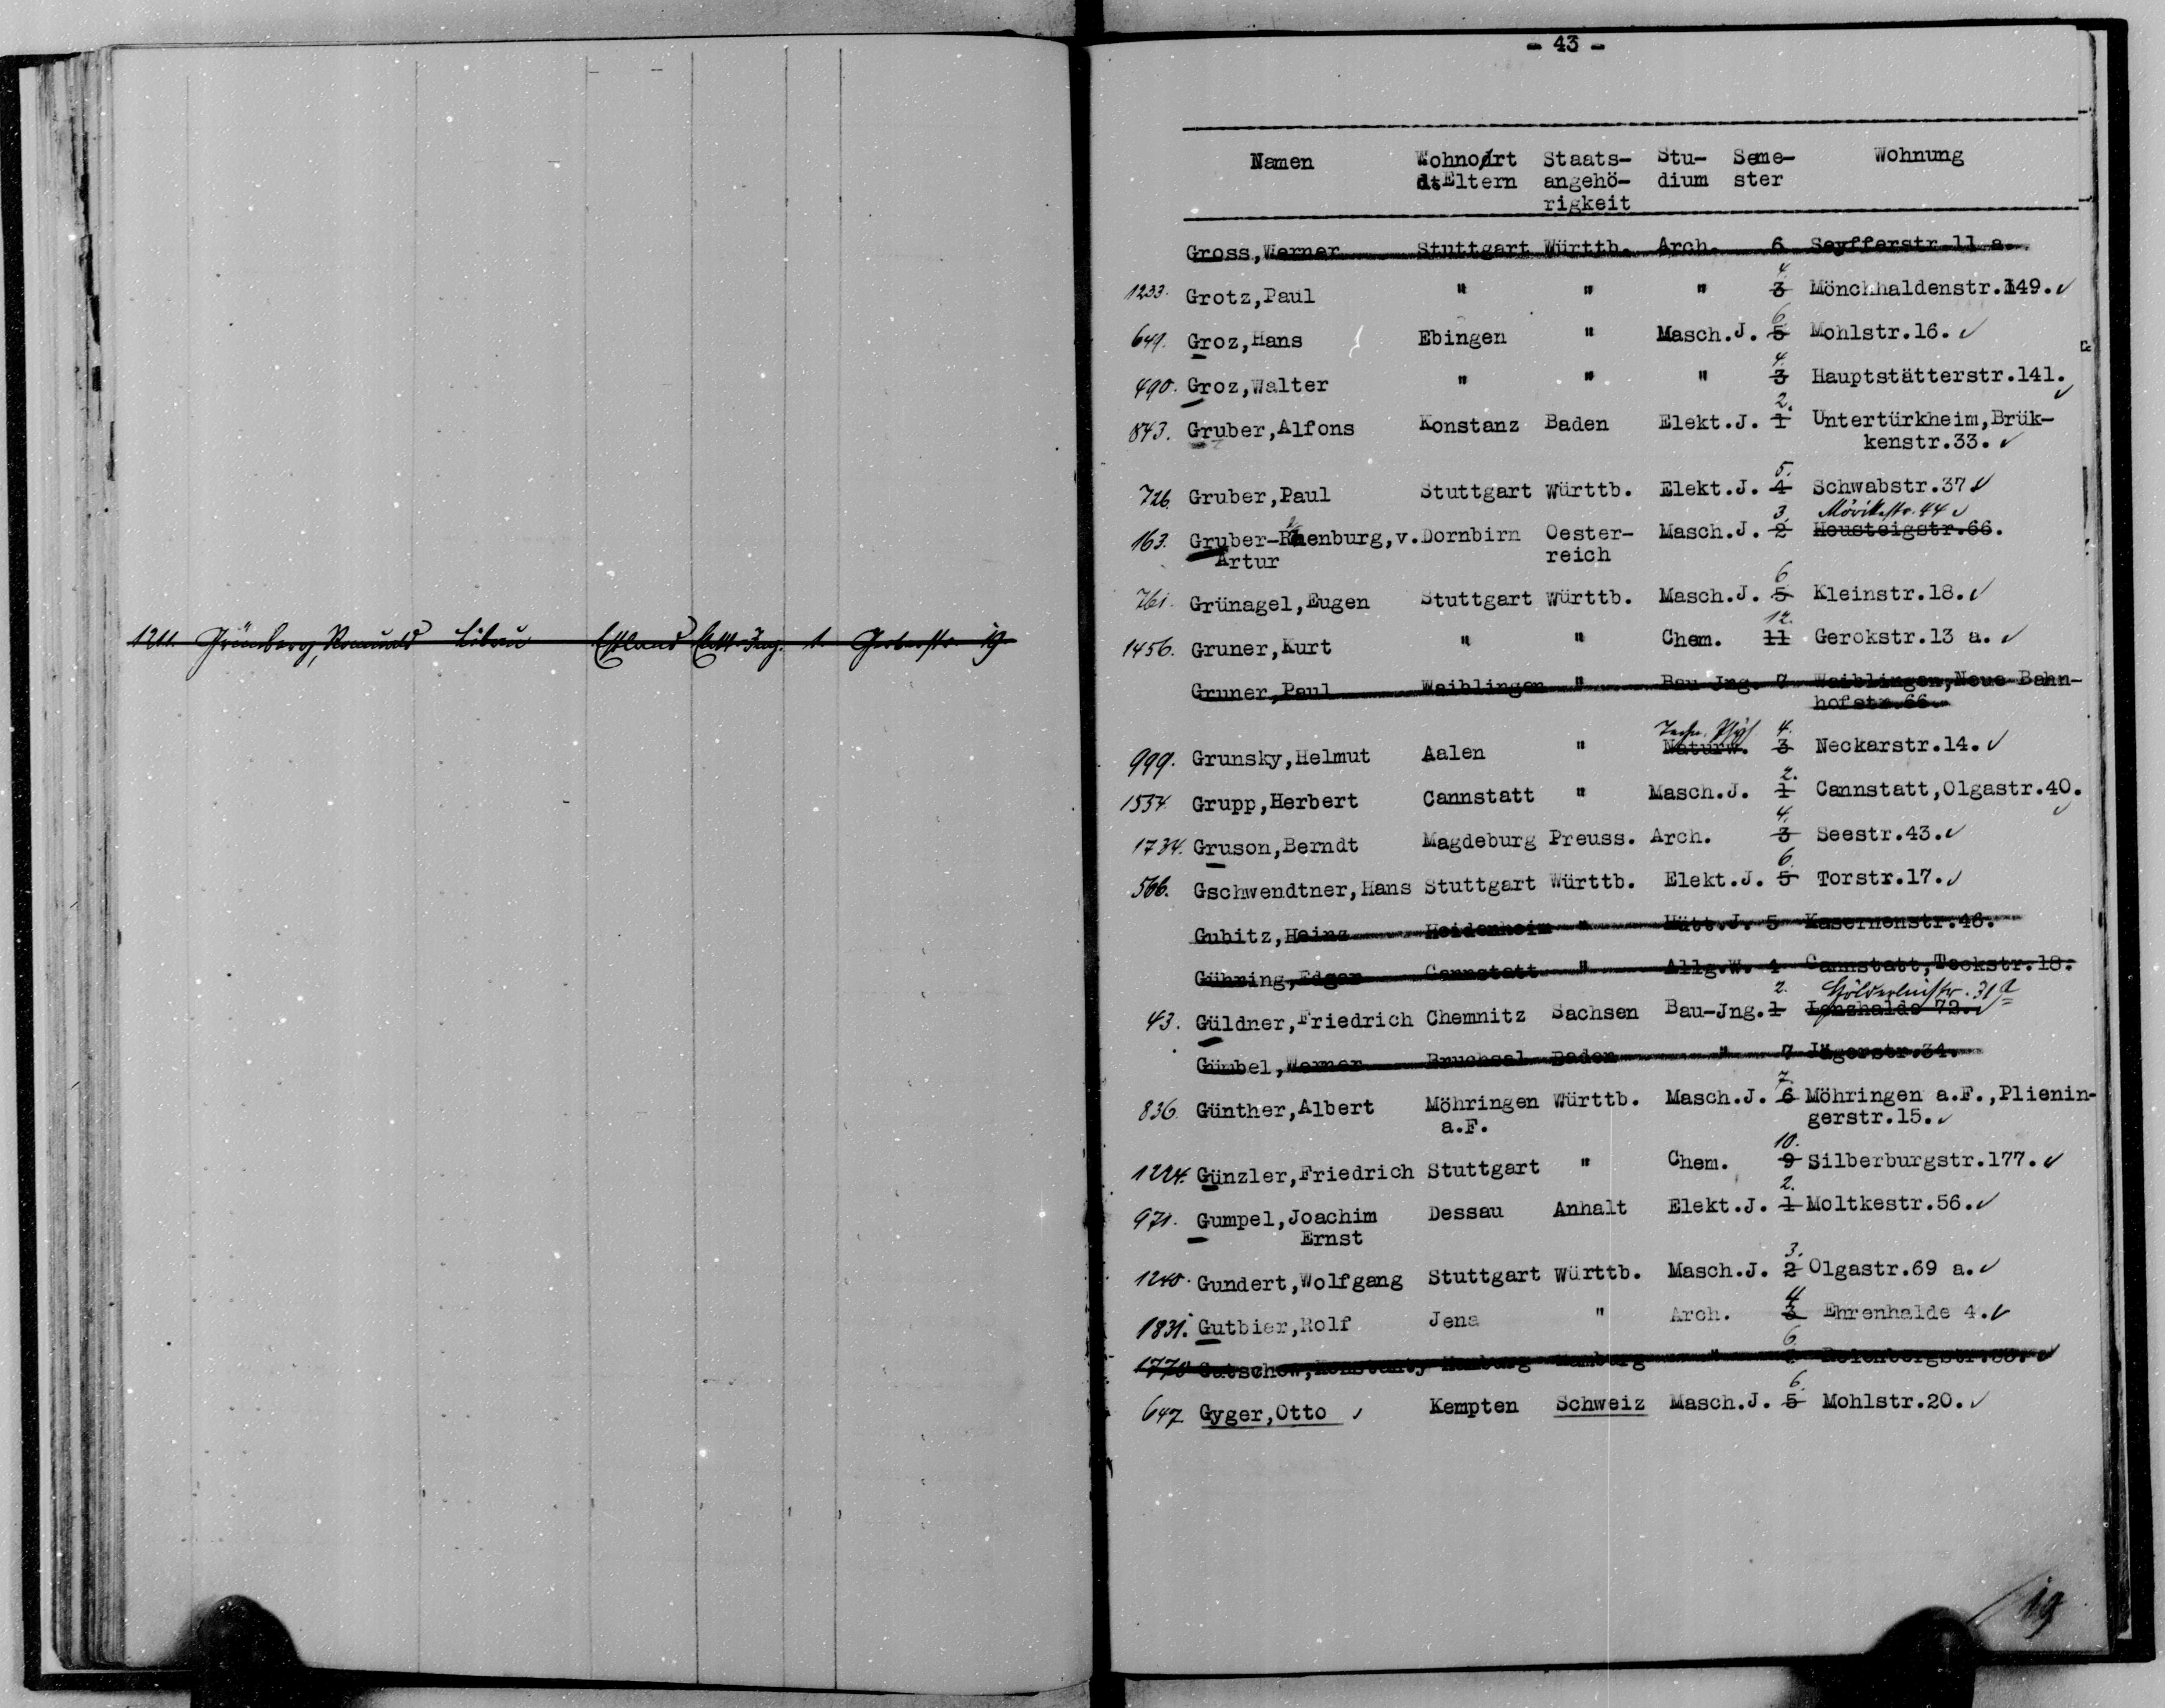 1211. Grünberg, Romuald Libau Estland Elekt. Ing. 1. Gerberstr. 19.
- 43 -
Namen Wohnort Staats- Stu- Seme- Wohnung
ds Eltern angehö- dium ster
rigkeit
Gross,Werner Stuttgart Württb. Arch. 6 Seyfferstr.11 a.
4.
1233. Grotz,Paul " " " 3 Mönchhaldenstr.149.
6
649. Groz,Hans Ebingen " Masch.J. 5 Mohlstr.16.
4.
490. Groz,Walter " " " 3 Hauptstätterstr.141.
2.
843. Gruber,Alfons Konstanz Baden Elekt.J. 1 Untertürkheim,Brük-
kenstr.33.
5.
726. Gruber,Paul Stuttgart Württb. Elekt.J. 4 Schwabstr.37
3. Mörikestr. 44
163. Gruber-Rhenburg,v. Dornbirn Oester- Masch.J. 2 Heusteigstr.66.
Artur reich
6
761. Grünagel,Eugen Stuttgart Württb. Masch.J. 5 Kleinstr.18.
12.
1456. Gruner,Kurt " " Chem. 11 Gerokstr.13 a.
Gruner,Paul Waiblingen " Bau Jng. 7 Waiblingen,Neue Bahn-
hofstr.66.
Techn. Phys. 4.
999. Grunsky,Helmut Aalen " Naturw. 3 Neckarstr.14.
2.
1534. Grupp,Herbert Cannstatt " Masch.J. 1 Cannstatt,Olgastr.40.
4.
1734. Gruson,Berndt Magdeburg Preuss. Arch. 3 Seestr.43.
6.
566. Gschwendtner,Hans Stuttgart Württb. Elekt.J. 5 Torstr.17.
Gubitz,Heinz Heidenheim " Hütt.J. 5 Kasernenstr.46.
Gühring,Edgar Cannstatt " Allg.W. 4 Cannstatt,Teckstr.18.
2. Hölderlinstr. 31
43. Güldner,Friedrich Chemnitz Sachsen Bau-Jng. 1 Lenzhalde 72.
Gümbel,Werner Bruchsal Baden " 7 Jägerstr.34.
7.
836. Günther,Albert Möhringen Württb. Masch.J. 6 Möhringen a.F.,Plienin-
a.F. gerstr.15.
10.
1224. Günzler,Friedrich Stuttgart " Chem. 9 Silberburgstr.177.
2.
971. Gumpel,Joachim Dessau Anhalt Elekt.J. 1 Moltkestr.56.
Ernst
3.
1240. Gundert,Wolfgang Stuttgart Württb. Masch.J. 2 Olgastr.69 a.
4
1831. Gutbier,Rolf Jena " Arch. 3 Ehrenhalde 4.
6
1770 Gutschow,Konstanty Hamburg Hamburg "
6.
647 Gyger,Otto Kempten Schweiz Masch.J. 5 Mohlstr.20.
19